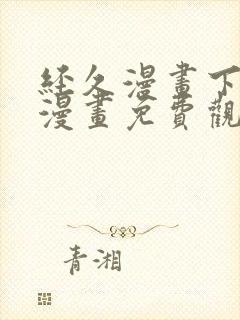 經久漫畫下
漫畫免費觀
青湘